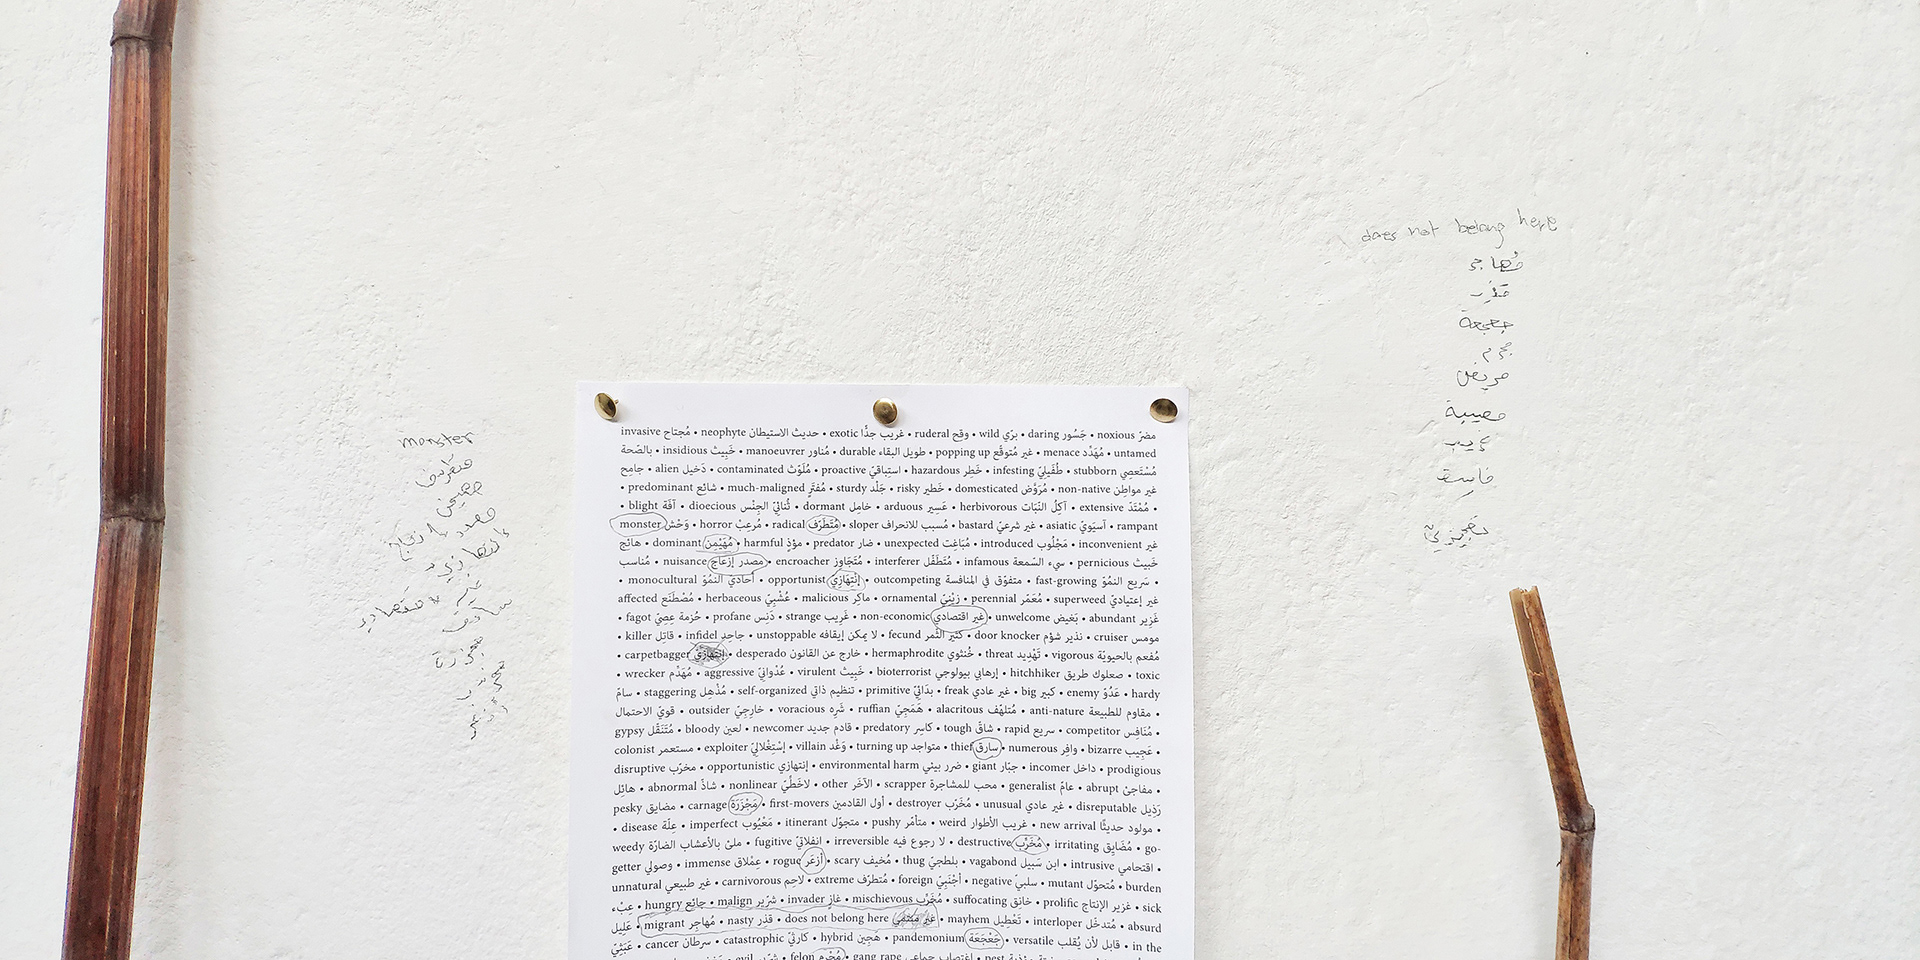 does not belong here
مُهاجر
قذر
جعجعة
مجرم
مريض
مصيبة
غريب
monster
متطرف
مهيمن
مصدر إزعاج
إنتهازي
غير اقتصادي
سارق
مجزرة
مخرب
أزعر
invasive مُجتاح • neophyte حديث الاستيطان • exotic غريب جدًّا • ruderal وقح • wild برّي • daring جَسُور • noxious مضرّ
بالصّحة • insidious خَبِيث • manoeuvrer مُناور • durable طويل البقاء • popping up غير مُتوقّع • menace مُهَدّد • untamed
جامح • alien دَخيل • contaminated مُلَوّث • proactive استِباقيّ • hazardous خَطِر • infesting طُفَيليّ • stubborn مُسْتَعصِي
• predominant شائع • much-maligned مُفترٍ • sturdy جَلْد • risky خَطير • domesticated مُرَوَّض • non-native غير مواطِن
• blight آفَة • dioecious ثُنائيّ الجِنْس • dormant خامِل • arduous عَسير • herbivorous آكِلُ النّبَات • extensive مُمْتَدّ
monster وَحْش • horror مُرعِبْ • radical مُتَطَرّف • sloper مُسبب للانحراف • bastard غير شرعيّ • asiatic آسيَويّ • rampant
هائج • dominant مُهَيْمِن • harmful مؤذٍ • predator ضار • unexpected مُبَاغِت • introduced مَجْلُوب • inconvenient غير
مُناسب • nuisance مصدر إزعاج • encroacher مُتَجَاوِز • interferer مُتَطَفّل • infamous سيء السّمعة • pernicious خَبيث
• monocultural أحاديّ النموّ • opportunist إنْتِهازِي • outcompeting متفوّق في المنافسة • fast-growing سَريع النموّ •
affected مُصْطَنَع • herbaceous عُشْبِيّ • malicious ماكِر • ornamental زِيْنِيّ • perennial مُعَمّر • superweed غير إعتياديّ
• fagot حُزمة عِصِيّ • profane دَنِس • strange غَرِيب • non-economic غير اقتصادي • unwelcome بَغيض • abundant غَزير
• killer قاتل • infidel جاحِد • unstoppable لا يمكن إيقافه • fecund كثيرُ الثّمر • door knocker نذير شؤم • cruiser مومس
• carpetbagger إنتهازيّ • desperado خارج عن القانون • hermaphrodite خُنثوي • threat تَهْدِيد • vigorous مُفعم بالحيويّة
• wrecker مُهَدّم • aggressive عُدْوانِيّ • virulent خَبِيث • bioterrorist إرهابي بيولوجي • hitchhiker صعلوك طريق • toxic
سامّ • staggering مُذْهِل • self-organized تنظيم ذاتي • primitive بِدَائيّ • freak غير عادي • big كبير • enemy عَدُوّ • hardy
قويّ الاحتمال • outsider خارِجِيّ • voracious شَرِه • ruffian هَمَجِيّ • alacritous مُتلهّف • anti-nature مقاوم للطبيعة •
gypsy مُتَنَقّل • bloody لعين • newcomer قادم جديد • predatory كاسِر • tough شاقّ • rapid سريع • competitor مُنَافِس •
colonist مستعمر • exploiter إسْتِغْلاليّ • villain وَغْد • turning up متواجد • thief سارق • numerous وافِر • bizarre عَجِيب •
disruptive مخرّب • opportunistic إنتهازي • environmental harm ضرر بيئي • giant جبّار • incomer داخل • prodigious
هائِل • abnormal شاذّ • nonlinear لاخَطّيّ • other الآخَر • scrapper محب للمشاجرة • generalist عامّ • abrupt مفاجئ •
pesky مضايق • carnage مَجْزَرَة • first-movers أول القادمين • destroyer مُخَرّب • unusual غير عادي • disreputable رَذِيل
• disease عِلّة • imperfect مَعْيُوب • itinerant متجوّل • pushy متأمّر • weird غريب الأطوار • new arrival مولود حديثًا •
weedy مليْ بالأعشاب الضارّة • fugitive انفلاتيّ • irreversible لا رجوع فيه • destructive مُخَرّب • irritating مُضَايِق • go-
getter وصولي • immense عملاق • rogue أزعَر • scary مُخيف • thug بلطجيّ • vagabond ابن سَبيل • intrusive اقتحامي •
unnatural غير طبيعي • carnivorous لاحِم • extreme مُتطرّف • foreign أجْنَبِيّ • negative سلبيّ • mutant مُتحوّل • burden
عِبْء • hungry جائِع • malign شرّير • invader غازٍ • mischievous مُخَرّب • suffocating خانق • prolific غزير الإنتاج • sick
عَلِيل • migrant مُهاجِر • nasty قذر • does not belong here غير منتمي • mayhem تَعْطِيل • interloper مُتدخّل • absurd
عَبَثِيّ • cancer سرطان • catastrophic كارثيّ • hybrid هَجِين • pandemonium جَعْجَعَة • versatile قابل لأن يُقلب • in the
evil شرّير • felon مُجْرِم • gang rape اغتصاب جماعي • pest